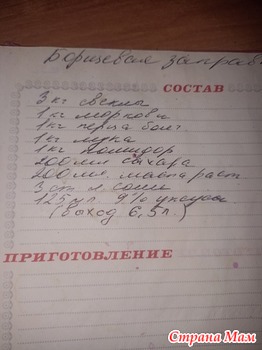 Борщевая заправ
СОСТАВ
3 кг свеклы
1 кг моркови
1 кг перца болг.
1 кг лука
1 кг помидор
200 мл сахара
200 мл масла раст
3 ст л. соли
125 мл 9% уксуса
(выход 6,5 л.)
ПРИГОТОВЛЕНИЕ
Страна Мам